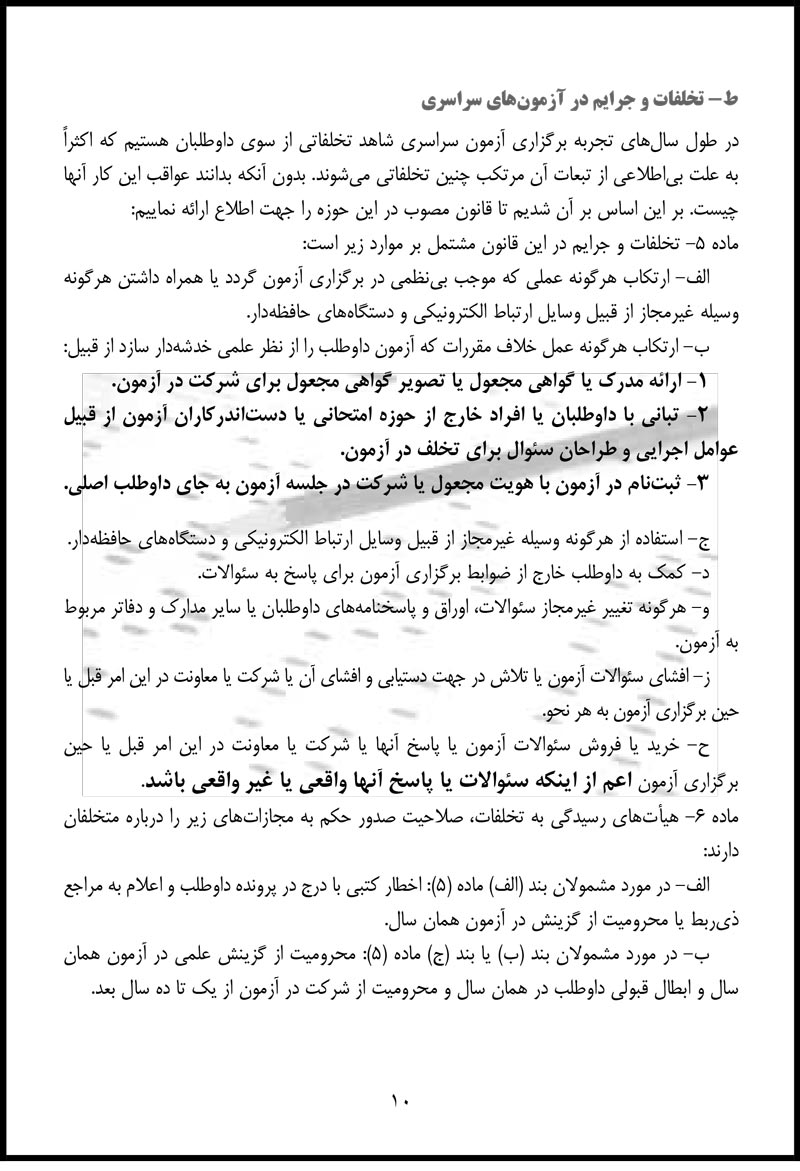 ط- تخلفات و جرایم در آزمون‌های سراسری
در طول سال‌های تجربه برگزاری آزمون سراسری شاهد تخلفاتی از سوی داوطلبان هستیم که اکثراً
به علت بی‌اطلاعی از تبعات آن مرتکب چنین تخلفاتی می‌شوند. بدون آنکه بدانند عواقب این کار آنها
چیست. بر این اساس بر آن شدیم تا قانون مصوب در این حوزه را جهت اطلاع ارائه نماییم:
ماده ۵- تخلفات و جرایم در این قانون مشتمل بر موارد زیر است:
الف- ارتکاب هرگونه عملی که موجب بی‌نظمی در برگزاری آزمون گردد یا همراه داشتن هرگونه
وسیله غیرمجاز از قبیل وسایل ارتباط الکترونیکی و دستگاه‌های حافظه‌دار.
ب- ارتکاب هرگونه عمل خلاف مقررات که آزمون داوطلب را از نظر علمی خدشه‌دار سازد از قبیل:
۱- ارائه مدرک یا گواهی مجعول یا تصویر گواهی مجعول برای شرکت در آزمون.
۲- تبانی با داوطلبان یا افراد خارج از حوزه امتحانی یا دست‌اندرکاران آزمون از قبیل
عوامل اجرایی و طراحان سئوال برای تخلف در آزمون.
۳- ثبت‌نام در آزمون با هویت مجعول یا شرکت در جلسه آزمون به جای داوطلب اصلی.
ج- استفاده از هرگونه وسیله غیرمجاز از قبیل وسایل ارتباط الکترونیکی و دستگاه‌های حافظه‌دار.
د- کمک به داوطلب خارج از ضوابط برگزاری آزمون برای پاسخ به سئوالات.
و- هرگونه تغییر غیرمجاز سئوالات، اوراق و پاسخنامه‌های داوطلبان یا سایر مدارک و دفاتر مربوط
به آزمون.
ز- افشای سئوالات آزمون یا تلاش در جهت دستیابی و افشای آن یا شرکت یا معاونت در این امر قبل یا
حین برگزاری آزمون به هر نحو.
ح- خرید یا فروش سئوالات آزمون یا پاسخ آنها یا شرکت یا معاونت در این امر قبل یا حین
برگزاری آزمون اعم از اینکه سئوالات یا پاسخ آنها واقعی یا غیر واقعی باشد.
ماده ۶- هیأت‌های رسیدگی به تخلفات، صلاحیت صدور حکم به مجازات‌های زیر را درباره متخلفان
دارند:
الف- در مورد مشمولان بند (الف) ماده (۵): اخطار کتبی با درج در پرونده داوطلب و اعلام به مراجع
ذی‌ربط یا محرومیت از گزینش در آزمون همان سال.
ب- در مورد مشمولان بند (ب) یا بند (ج) ماده (۵): محرومیت از گزینش علمی در آزمون همان
سال و ابطال قبولی داوطلب در همان سال و محرومیت از شرکت در آزمون از یک تا ده سال بعد.
۱۰